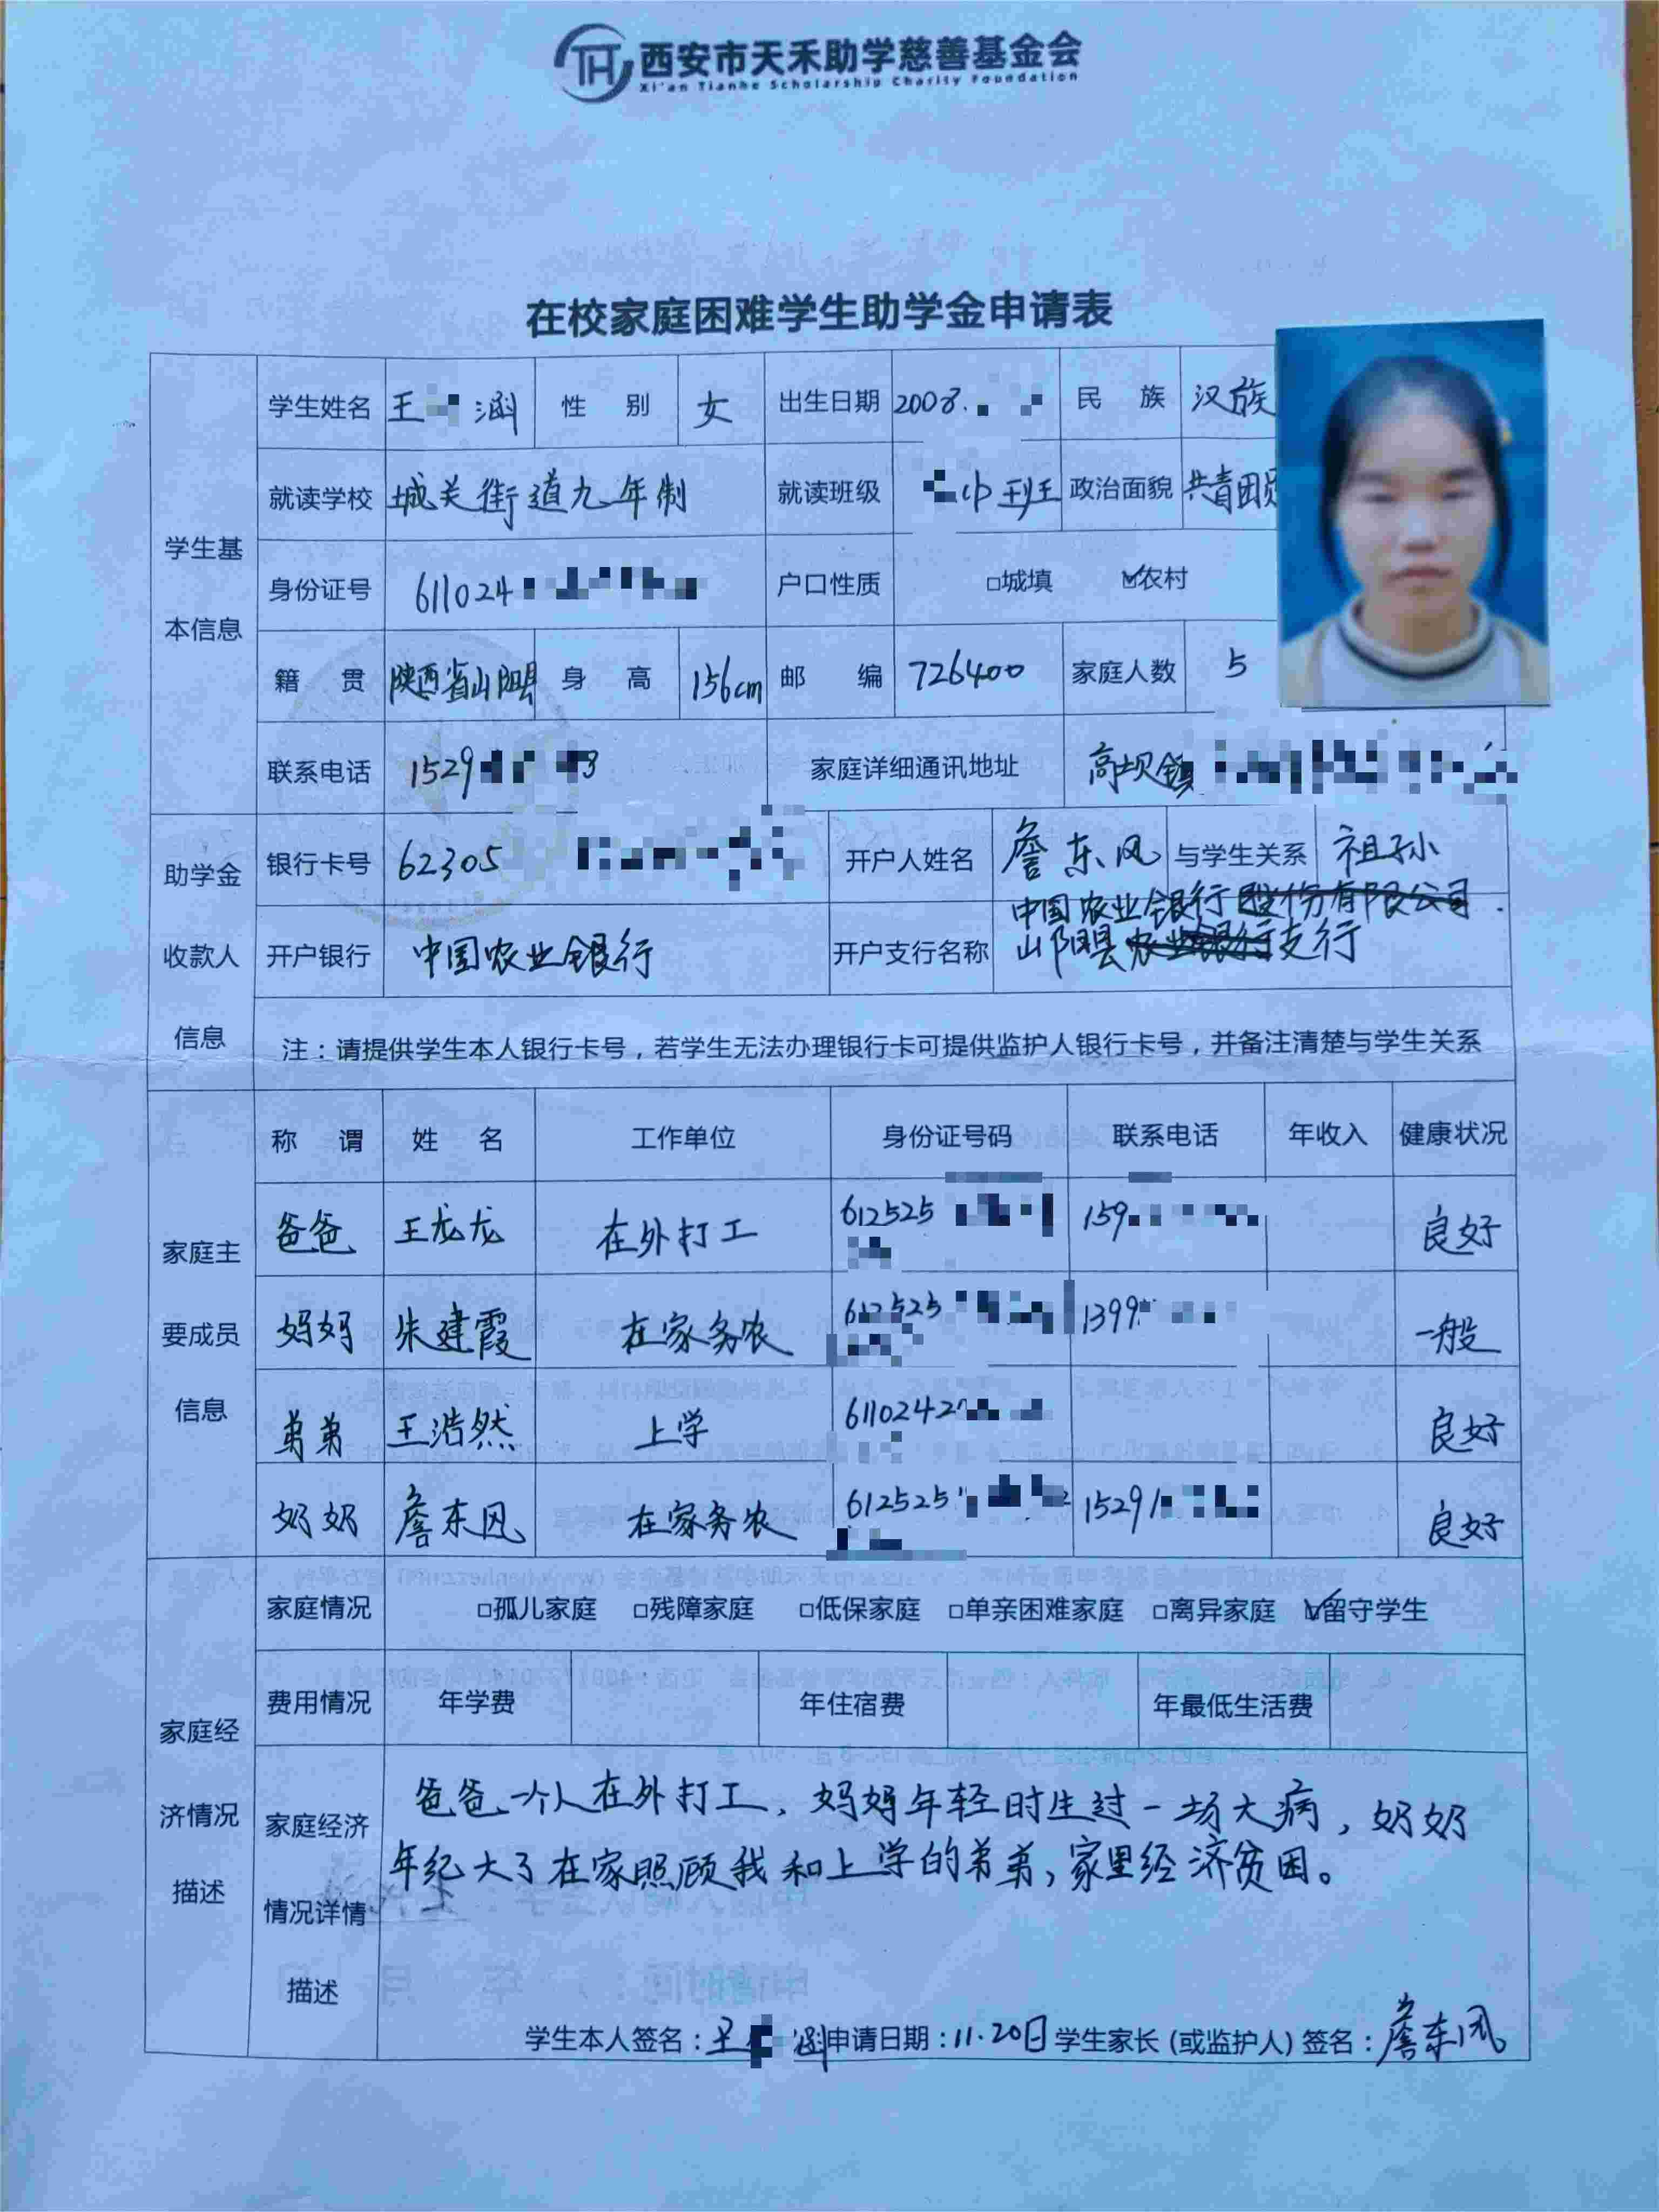 西安市天禾助学慈善基金会
Xi'an Tianhe Scholarship Charity Foundation
在校家庭困难学生助学金申请表
学生基本信息
学生姓名 王 涵 性别 女 出生日期 2008. 民族 汉族
就读学校 城关街道九年制 就读班级 中班 政治面貌 共青团员
身份证号 611024 户口性质 □城填 ☑农村
籍贯 陕西省山阳县 身高 156cm 邮编 726400 家庭人数 5
联系电话 1529 3 家庭详细通讯地址 高坝镇
助学金收款人信息
银行卡号 62305 开户人姓名 詹东风 与学生关系 祖孙
开户银行 中国农业银行 开户支行名称 中国农业银行股份有限公司.
山阳县农业银行支行
注：请提供学生本人银行卡号，若学生无法办理银行卡可提供监护人银行卡号，并备注清楚与学生关系
家庭主要成员信息
称谓 姓名 工作单位 身份证号码 联系电话 年收入 健康状况
爸爸 王龙龙 在外打工 612525 159 良好
妈妈 朱建霞 在家务农 612525 1399 一般
弟弟 王浩然 上学 6110242 良好
奶奶 詹东风 在家务农 612525 15291 良好
家庭经济情况描述
家庭情况 □孤儿家庭 □残障家庭 □低保家庭 □单亲困难家庭 □离异家庭 ☑留守学生
费用情况 年学费 年住宿费 年最低生活费
家庭经济情况详情描述
爸爸一个人在外打工，妈妈年轻时生过一场大病，奶奶
年纪大了在家照顾我和上学的弟弟，家里经济贫困。
学生本人签名：王 涵 申请日期：11.20日 学生家长（或监护人）签名：詹东风